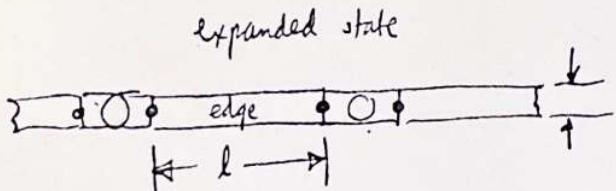 expanded state
edge
l